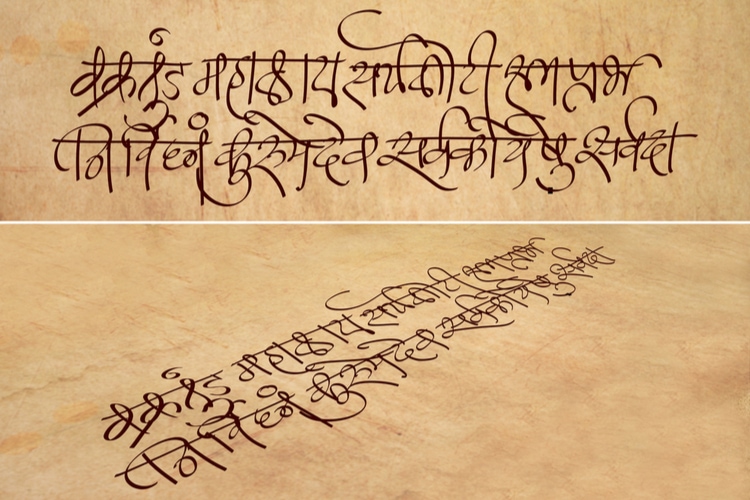 वक्रतुंड महाकाय सर्यकोटी समप्रभ
निर्विघ्नं कुरुमेदेव सर्वकार्येषु सर्वदा
वक्रतुंड महाकाय सर्यकोटी समप्रभ
निर्विघ्नं कुरुमेदेव सर्वकार्येषु सर्वदा